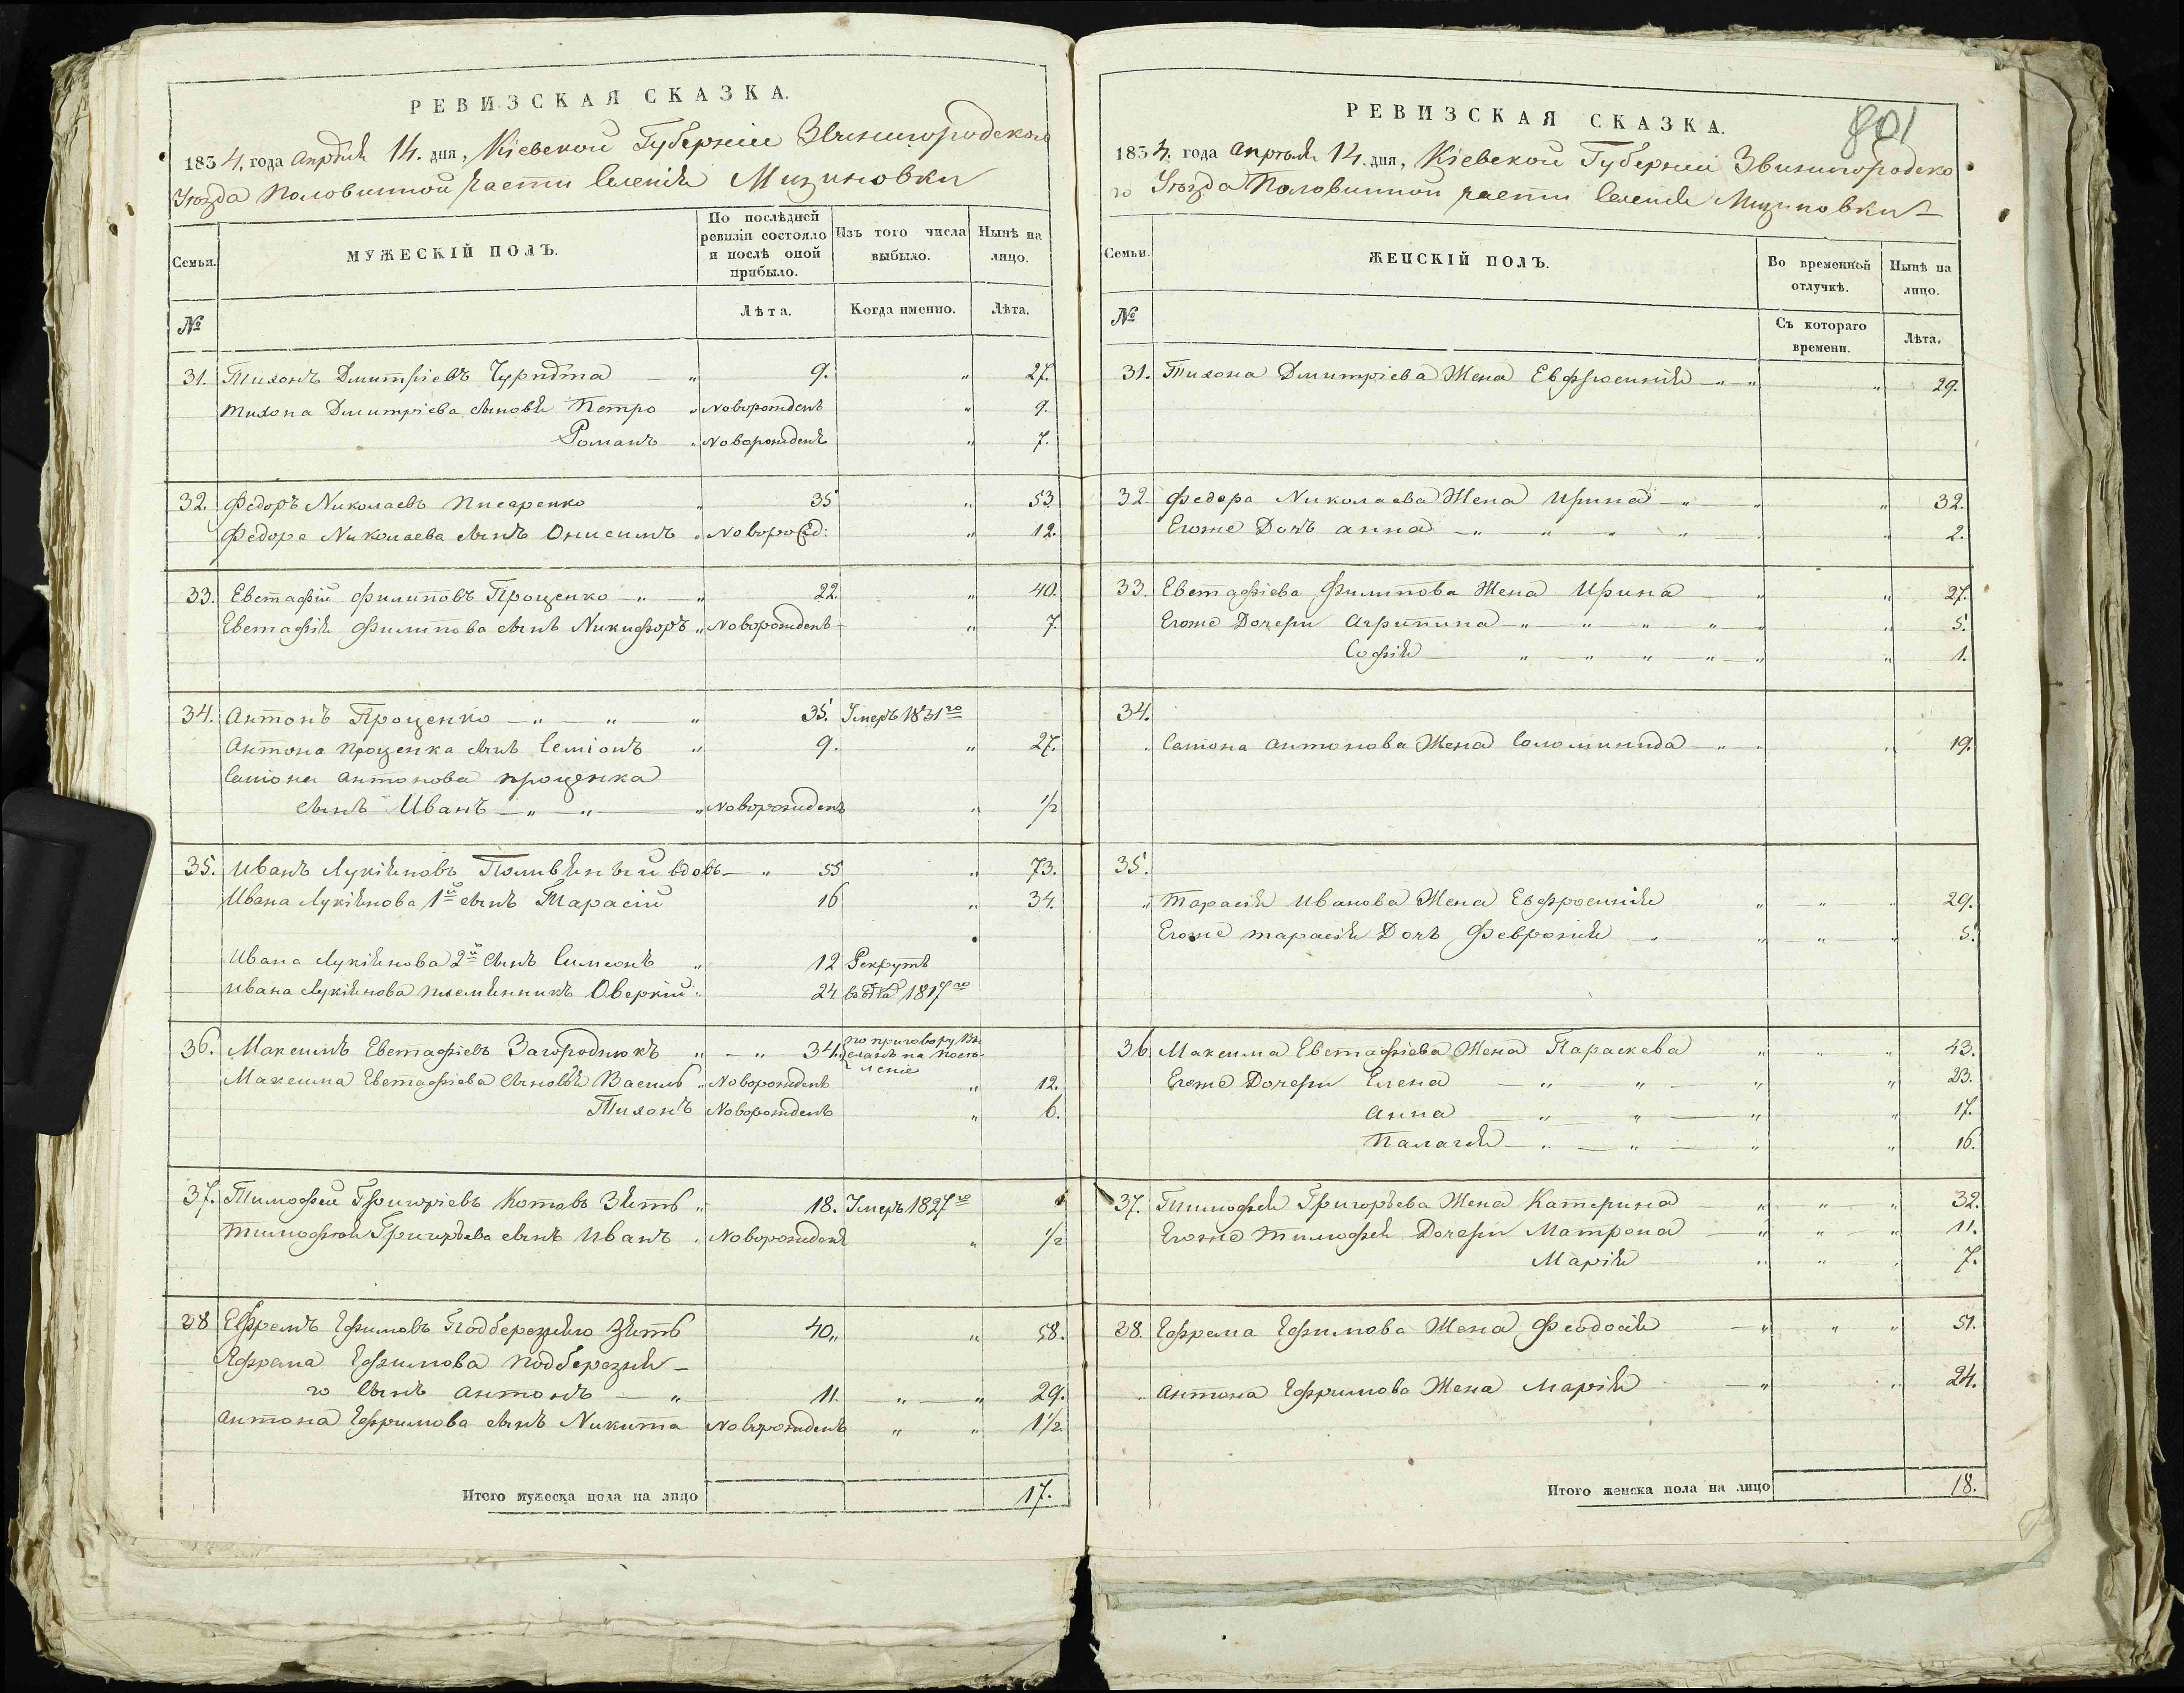 РЕВИЗСКАЯ СКАЗКА.
1834, года Апреля 14. дня, Кіевской Губерніи Звенигородскаго
Уезда Половинной части Селенія Мизиновки
Семьи.
№
МУЖЕСКІЙ ПОЛЪ.
По послѣдней ревизіи состояло и послѣ оной прибыло.
Лѣта.
Изъ того числа выбыло.
Когда именно.
Нынѣ на лицо.
Лѣта.
31. Тихонъ Дмитріевъ 9. " 27.
Тихона Дмитріева сыновья Петро " Новорожденъ " 9.
Романъ " Новорожденъ " 7.
32. Федоръ Николаевъ Писаренко " 35 " 53
Федора Николаева сынъ Онисимъ " Новорожд: " 12.
33. Евстафій Филиповъ Проценко " 22. " 40.
Евстафія Филипова сынъ Никифоръ " Новорожденъ " 7.
34. Антонъ Проценко " " " 35. Умеръ 1831го
Антона Проценка сынъ Семіонъ " 9. " 27.
Саміона Антонова Проценка
сынъ Иванъ " " " Новорожденъ " 1/2
35. Иванъ Лукіяновъ вдовъ " 55 " 73.
Ивана Лукіянова 1й сынъ Тарасій 16 " 34.
Ивана Лукіянова 2й сынъ Симеонъ " 12 Рекрутъ
Ивана Лукіянова племянникъ Оверкій " 24 1817го
36. Максимъ Евстафіевъ Загороднюкъ " " 34. по приговору
сланъ на посе-
леніе
Максима Евстафіева сыновья Василь " Новорожденъ " 12.
Тихонъ Новорожденъ " 6.
37. Тимофей Григоріевъ Котовъ Зять " 18. Умеръ 1827го
Тимофея Григорьева сынъ Иванъ " Новорожденъ " 1/2
38 Ефремъ Ефимовъ Подберезняго Зять 40 " " 58.
Ефрема Ефимова Подберезня-
го сынъ Антонъ " 11. " " 29.
Антона Ефримова сынъ Никита Новорожденъ " " 1 1/2
Итого мужеска пола на лицо 17.
801
РЕВИЗСКАЯ СКАЗКА.
1834. года Апреля 14. дня, Кіевской Губерніи Звенигородска
го Уезда Половинной части Селенія Мизиновки
Семьи.
№
ЖЕНСКІЙ ПОЛЪ.
Во временной отлучкѣ.
Съ котораго времени.
Нынѣ на лицо.
Лѣта.
31. Тихона Дмитріева Жена Евфросинія " " " 29.
32 Федора Николаева Жена Ирина " " " 32.
Егоже Дочь Анна " " " " " " 2.
33. Евстафіева Филипова Жена Ирина " " 27.
Егоже Дочери Агрипина " " " " " " 5.
Софія " " " " " " 1.
34.
" Саміона Антонова Жена Соломинида " " " 19.
35.
" Тарасія Иванова Жена Евфросинія " " " 29.
Егоже Тарасія Дочь Февронія " " " " 5.
36 Максима Евстафіева Жена Параскева " " 43.
Егоже Дочери Елена " " " " 23.
Анна " " " " 17.
Палагея " " " " 16.
37. Тимофея Григорьева Жена Катерина " " " 32.
Егоже Тимофея Дочери Матрона " " " 11.
Марія " " " 7.
38. Ефрема Ефимова Жена Феодосія " " " 51.
" Антона Ефримова Жена Марія " " 24.
Итого женска пола на лицо 18.